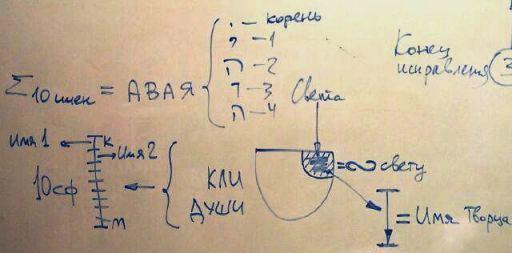 · - корень
י - 1
ה - 2
ו - 3
ה - 4
Σ10 имен = АВАЯ
Конец
исправления 3
Света
имя 1
К
имя 2
10 сф
М
КЛИ
ДУШИ
= ∞ свету
= Имя Творца